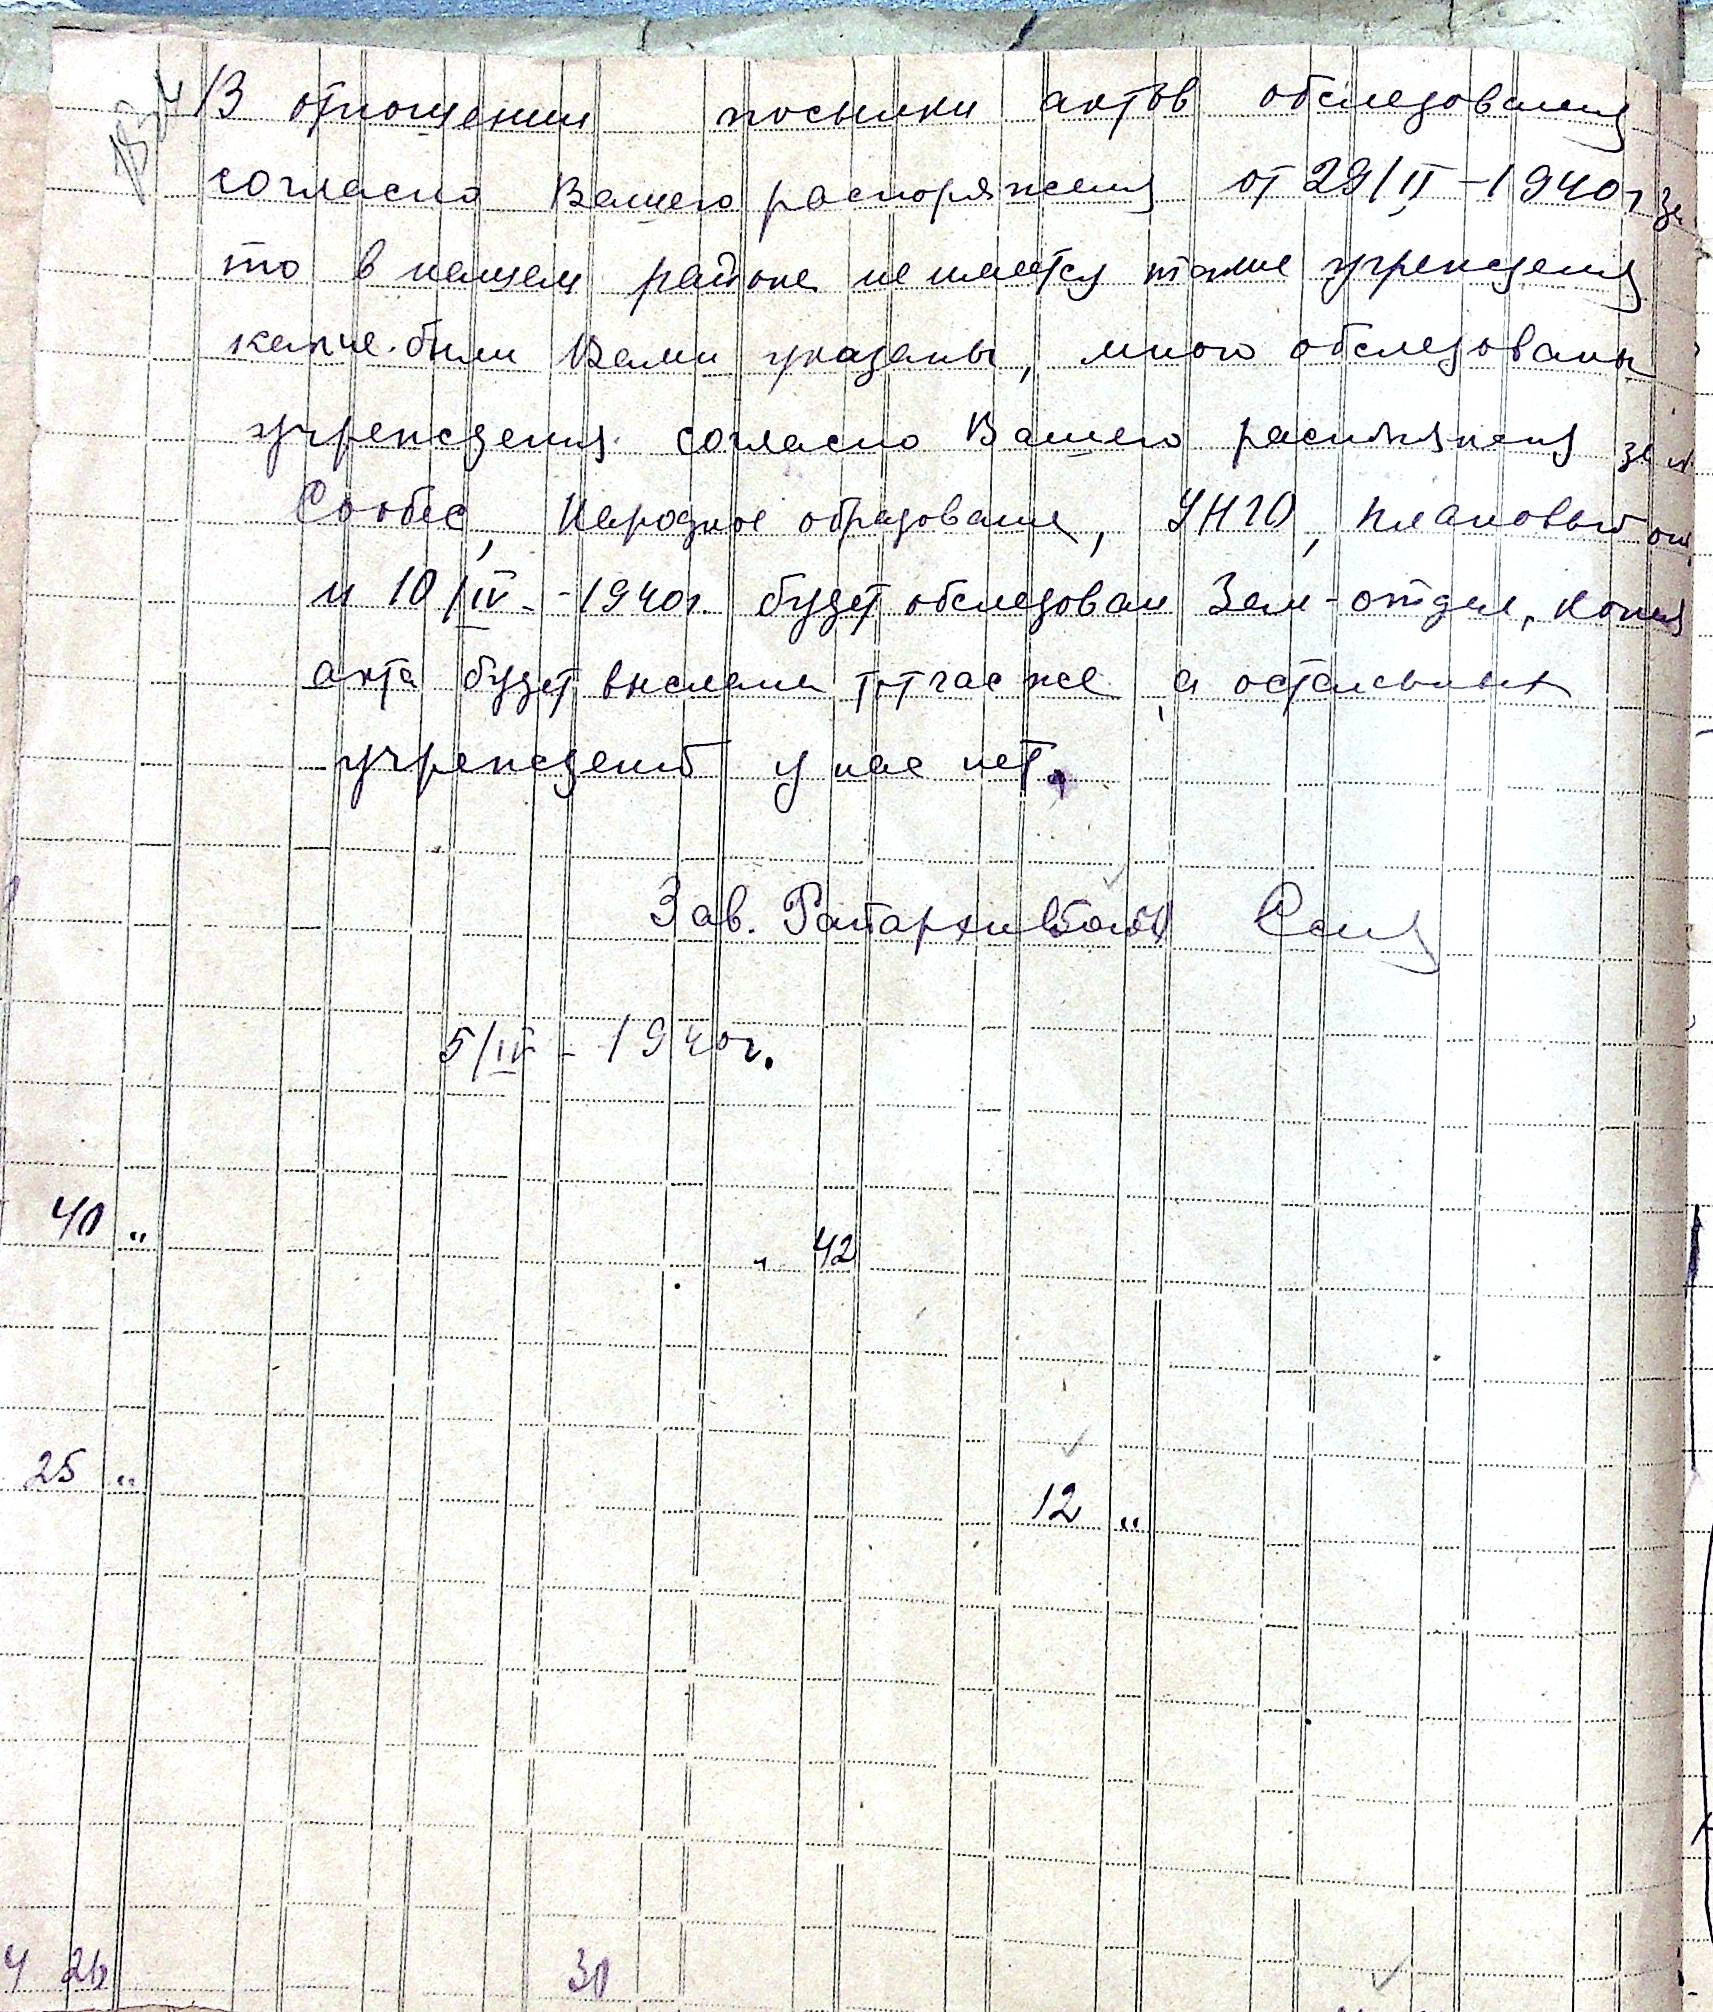 В отношении посылки актов обследования
согласно Вашего распоряжения от 29/II-1940г за
то в нашем районе не имеется такие учреждения
какие были Вами указаны, мною обследованы
учреждения согласно Вашего распоряжения за
Собес, Народное образование, УНХУ, плановый от
и 10/IV--1940г. будет обследован Зем-отдел, копия
акта будет выслана тотчас же, а остальных
учреждений у нас нет.
Зав. Райархивом
5/IV-1940г.
40 "
" 42
25 "
12 "
4 26
30